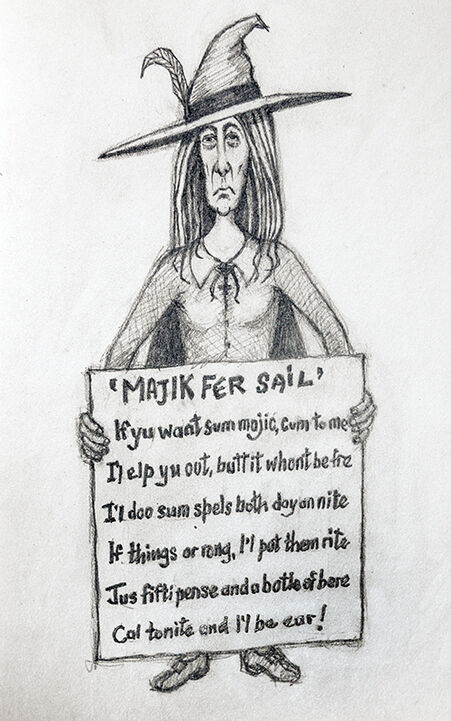 'MAJIK FER SAIL'
If yu waat sum mojic, cum to me
I'l elp yu out, butt it whont be fre
I'l doo sum spels both day an nite
If things or rong, I'l pat them rite
Jus fifti pense and a botle of bere
Cal tonite and I'l be ear!